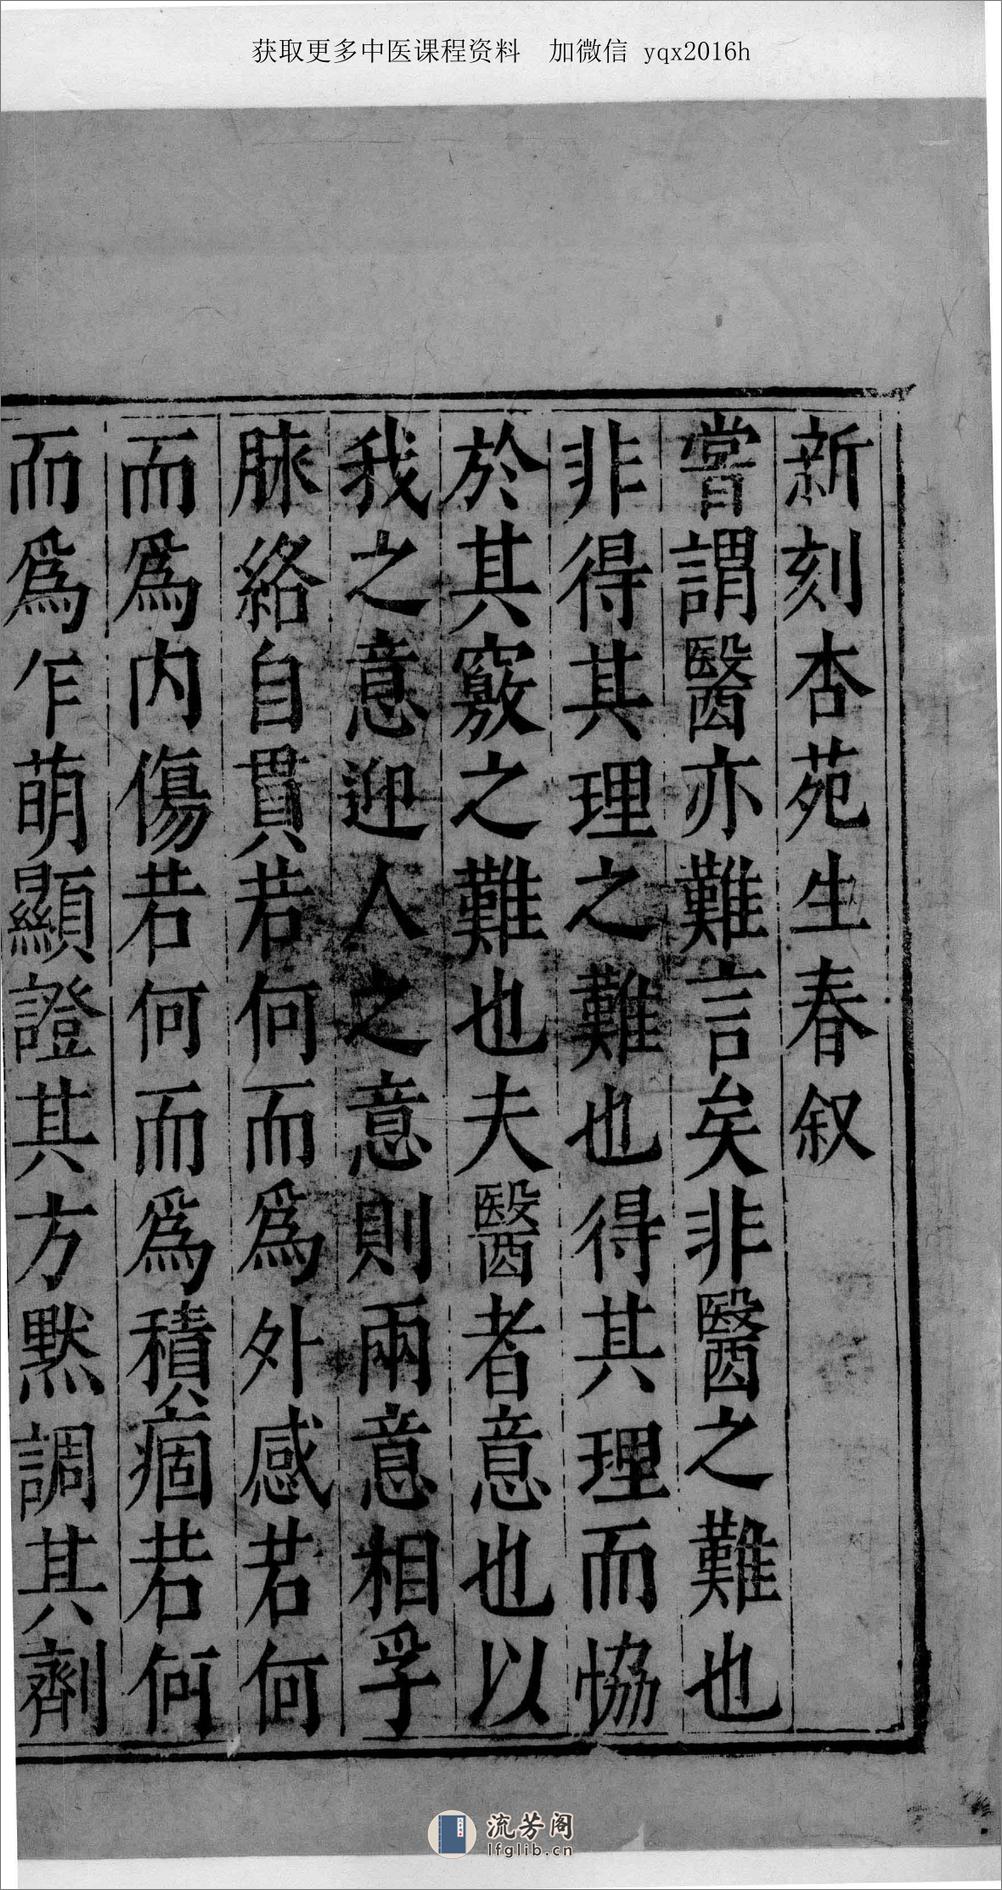 获取更多中医课程资料 加微信 yqx2016h
新刻杏苑生春叙
嘗謂醫亦難言矣非醫之難也
非得其理之難也得其理而恊
於其竅之難也夫醫者意也以
我之意迎人之意則兩意相孚
脉絡自貫若何而爲外感若何
而爲内傷若何而爲積痼若何
而爲乍萌顯證其方黙調其劑
流芳阁
lfglib.cn